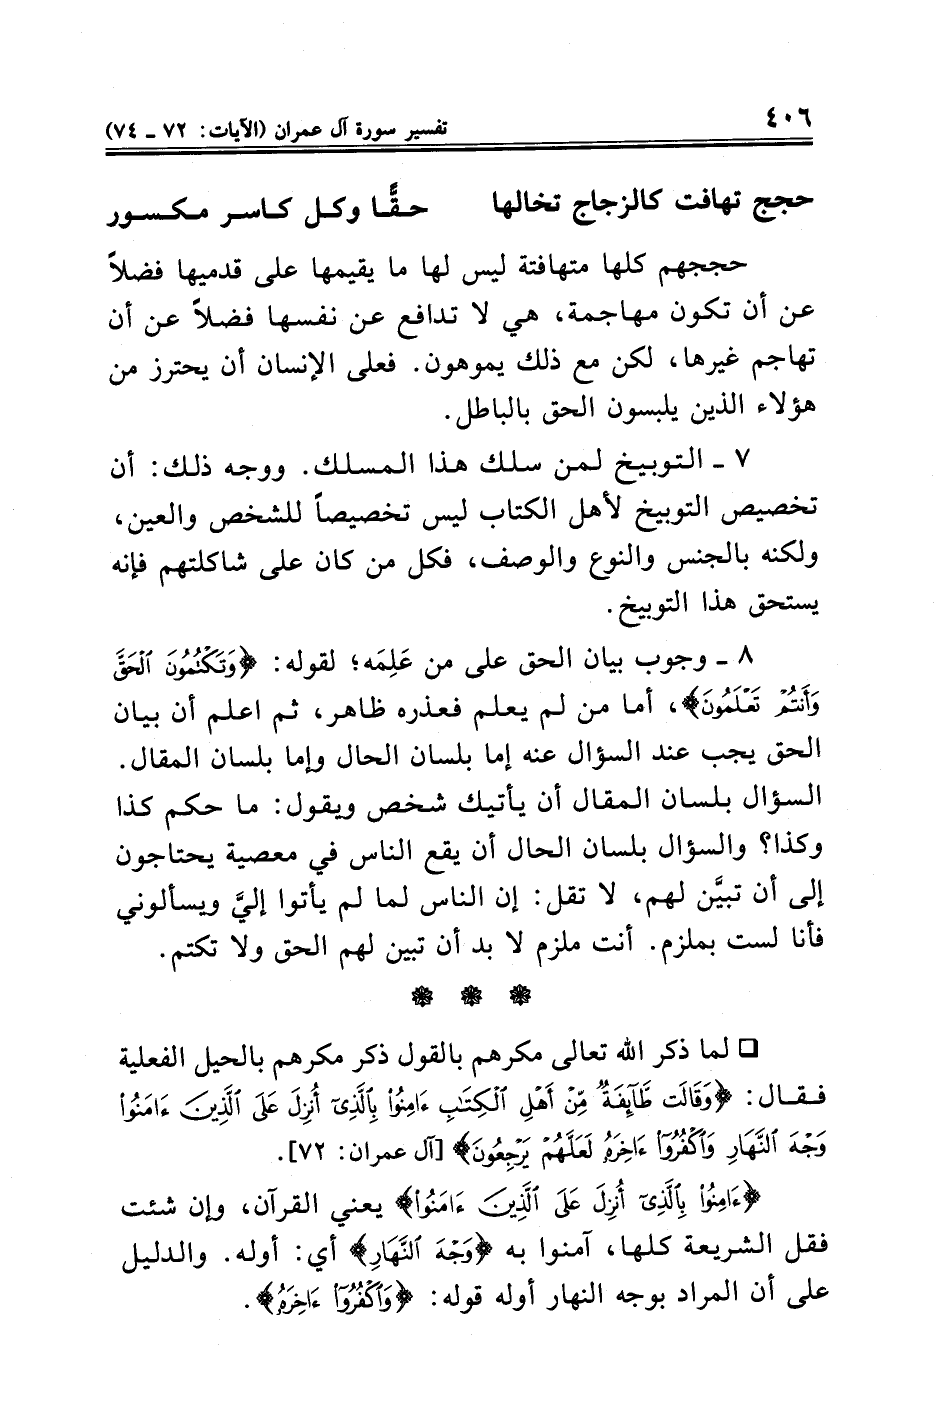 ٤٠٦
تفسير سورة آل عمران (الآيات: ٧٢ ـ ٧٤)
حجج تهافت كالزجاج تخالها حقًّا وكل كاسر مكسور
حججهم كلها متهافتة ليس لها ما يقيمها على قدميها فضلاً
عن أن تكون مهاجمة، هي لا تدافع عن نفسها فضلاً عن أن
تهاجم غيرها، لكن مع ذلك يموهون. فعلى الإنسان أن يحترز من
هؤلاء الذين يلبسون الحق بالباطل.
٧ ـ التوبيخ لمن سلك هذا المسلك. ووجه ذلك: أن
تخصيص التوبيخ لأهل الكتاب ليس تخصيصاً للشخص والعين،
ولكنه بالجنس والنوع والوصف، فكل من كان على شاكلتهم فإنه
يستحق هذا التوبيخ.
٨ ـ وجوب بيان الحق على من عَلِمَه؛ لقوله: ﴿وَتَكْتُمُونَ ٱلْحَقَّ
وَأَنتُمْ تَعْلَمُونَ﴾، أما من لم يعلم فعذره ظاهر، ثم اعلم أن بيان
الحق يجب عند السؤال عنه إما بلسان الحال وإما بلسان المقال.
السؤال بلسان المقال أن يأتيك شخص ويقول: ما حكم كذا
وكذا؟ والسؤال بلسان الحال أن يقع الناس في معصية يحتاجون
إلى أن تبيَّن لهم، لا تقل: إن الناس لما لم يأتوا إليَّ ويسألوني
فأنا لست بملزم. أنت ملزم لا بد أن تبين لهم الحق ولا تكتم.
❁ ❁ ❁
□ لما ذكر الله تعالى مكرهم بالقول ذكر مكرهم بالحيل الفعلية
فقال: ﴿وَقَالَت طَّآئِفَةٌ مِّنْ أَهْلِ ٱلْكِتَٰبِ ءَامِنُوا۟ بِٱلَّذِىٓ أُنزِلَ عَلَى ٱلَّذِينَ ءَامَنُوا۟
وَجْهَ ٱلنَّهَارِ وَٱكْفُرُوٓا۟ ءَاخِرَهُۥ لَعَلَّهُمْ يَرْجِعُونَ﴾ [آل عمران: ٧٢].
﴿ءَامِنُوا۟ بِٱلَّذِىٓ أُنزِلَ عَلَى ٱلَّذِينَ ءَامَنُوا۟﴾ يعني القرآن، وإن شئت
فقل الشريعة كلها، آمنوا به ﴿وَجْهَ ٱلنَّهَارِ﴾ أي: أوله. والدليل
على أن المراد بوجه النهار أوله قوله: ﴿وَٱكْفُرُوٓا۟ ءَاخِرَهُۥ﴾.